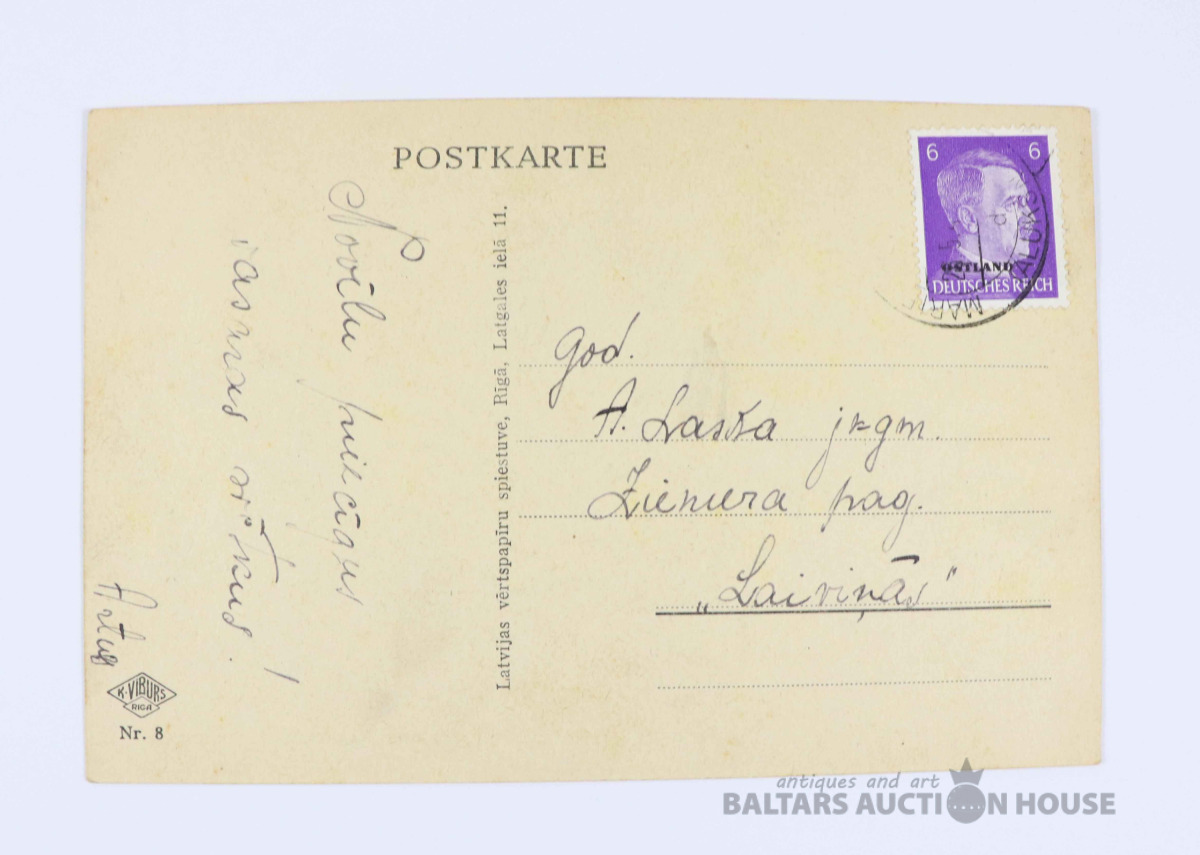 POSTKARTE
Novēlu priecīgus
vasras svētkus!
Latvijas vērtspapīru spiestuve, Rīgā, Latgales ielā 11.
6 6
OSTLAND
DEUTSCHES REICH
God.
A. Laska jrgm.
Ziemera pag.
„Laiviņās"
K·VIBURS
RIGA
Nr. 8
antiques and art
BALTARS AUCTION HOUSE